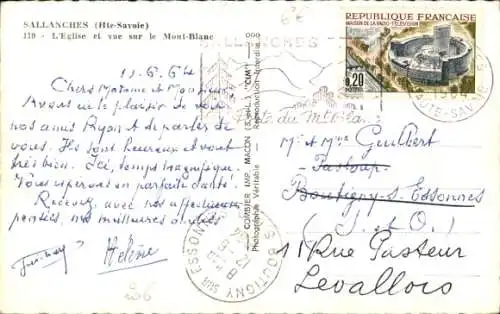 SALLANCHES (Hte-Savoie)
119 - L'Eglise et vue sur le Mont-Blanc
13.6.64
Chers Madame et Monsieur,
Avons eu le plaisir de voir
nos amis Ryon et de parler de
vous. Ils sont heureux et vont
très bien. Ici, temps magnifique.
Vous espérons en parfaite santé.
Recevez, avec nos affectueuses
pensées, nos meilleures amitiés
Hélène
COMBIER IMP. MACON (S.-&-L.) "CIM"
Photographie Véritable - Reproduction interdite
SALLANCHES
Porte du Mt Blanc
REPUBLIQUE FRANÇAISE
MAISON DE LA RADIO-TÉLÉVISION
0,20
POSTES
HAUTE-SAVOIE
Mr et Mme Guilbert
Pasteur
Boutigny s. Essonnes
(S. et O.)
11 Rue Pasteur
Levallois
BOUTIGNY SUR ESSONNE